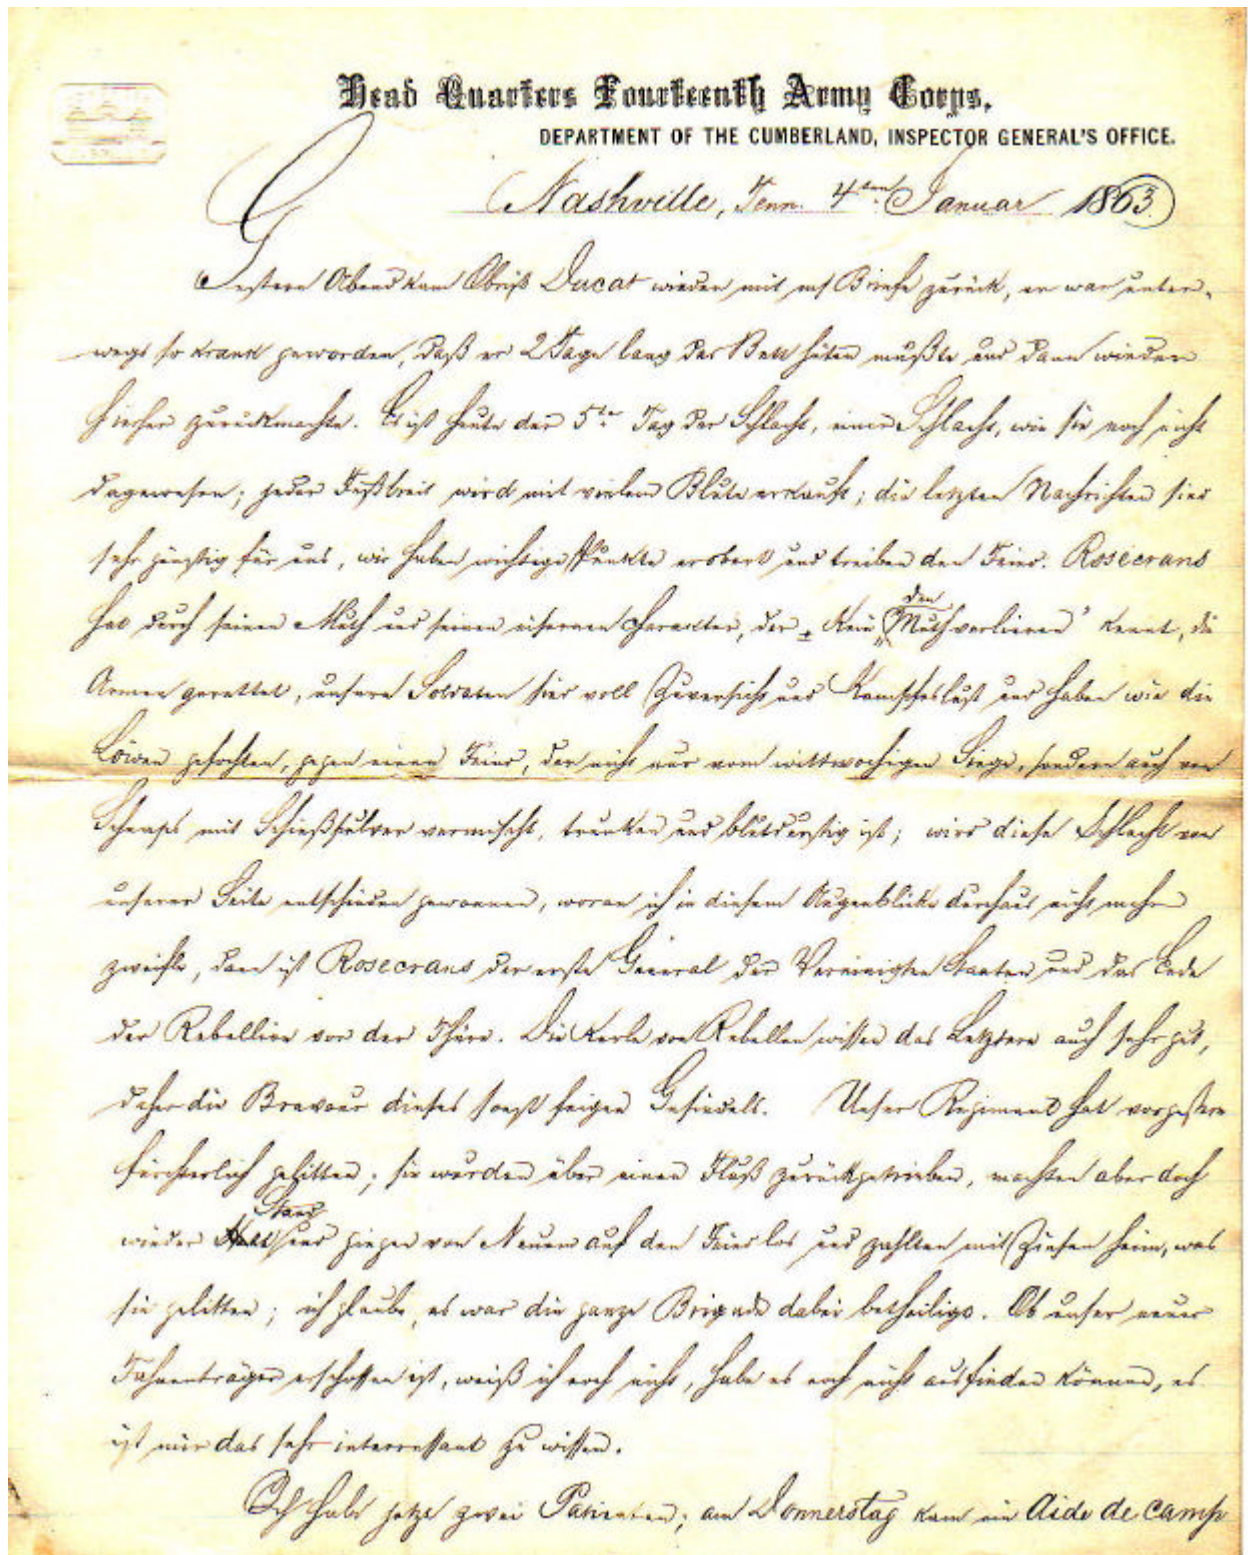 Head Quarters Fourteenth Army Corps.
DEPARTMENT OF THE CUMBERLAND, INSPECTOR GENERAL'S OFFICE.
Nashville, Tenn. 4ten Januar 1863
Gestern Abend kam Obrist Ducat wieder mit Briefe zurück, er war unter-
wegs so krank geworden, daß er 2 Tage lang das Bett hüten mußte und dann wieder
hierher zurückmachte. Es ist heute der 5te Tag der Schlacht, einer Schlacht, wie sie noch nicht
dagewesen; jeder Fußbreit wird mit vielem Blute erkauft; die letzten Nachrichten sind
sehr günstig für uns, wir haben wichtige Punkte erobert und treiben den Feind. Rosecrans
hat durch seinen Muth und seinen eisernen Charakter, der „Kein den Muth verlieren" kennt, die
Armee gerettet, unsere Soldaten sind voll Zuversicht und Kampfeslust und haben wie die
Löwen gefochten, gegen einen Feind, der nicht nur vom mittwochigen Siege, sondern auch von
Schnaps mit Schießpulver vermischt, trunken und blutdurstig ist; wird diese Schlacht von
unserer Seite entschieden gewonnen, woran ich in diesem Augenblicke durchaus nicht mehr
zweifle, dann ist Rosecrans der erste General der Vereinigten Staaten und das Ende
der Rebellion vor der Thüre. Die Kerle von Rebellen wissen das Letztere auch sehr gut,
daher die Bravour dieses sonst feigen Gesindels. Unser Regiment hat vorgestern
fürchterlich gelitten; sie wurden über einen Fluß zurückgetrieben, machten aber doch
wieder Stand und gingen von Neuem auf den Feind los und zahlten mit Zinsen heim, was
sie gelitten; ich glaube, es war die ganze Brigade dabei betheiligt. Ob unser neuer
Fahnenträger erschossen ist, weiß ich noch nicht, habe es noch nicht ausfinden können, es
ist mir das sehr interessant zu wissen.
Ich habe jetzt zwei Patienten; am Donnerstag kam ein Aide de camp